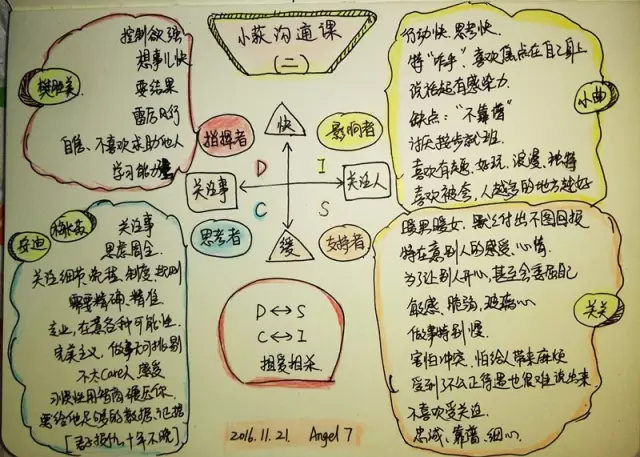 小荻沟通课
(二)
控制欲强
想事儿快
要结果
雷厉风行
自信、不喜欢求助他人
学习能力强
樊胜美
指挥者
影响者
快
关注事
关注人
D
I
C
S
思考者
支持者
慢
行动快 思考快
特"咋乎" 喜欢焦点在自己身上
说话超有感染力
缺点："不靠谱"
讨厌按步就班
喜欢有趣、好玩、浪漫、独特
喜欢聚会，人越多的地方越好
小曲
安迪
关注事
思虑周全
关注细节、流程、制度、规则
需要精确、精准
专业，在意各种可能性
完美主义，做事无可挑剔
不大care人感受
习惯性用智商碾压你
要给他足够的数据、证据
[君子报仇，十年不晚]
D ↔ S
C ↔ I
相爱相杀
暖男暖女，默默付出不图回报
特在意别人的感受、心情
为了让别人开心，甚至会委屈自己
敏感、脆弱、玻璃心
做事特别慢
害怕冲突，怕给人带来麻烦
受到不公正待遇也很难说出来
不喜欢受关注
忠诚、靠谱、细心
关关
2016.11.21. Angel 7